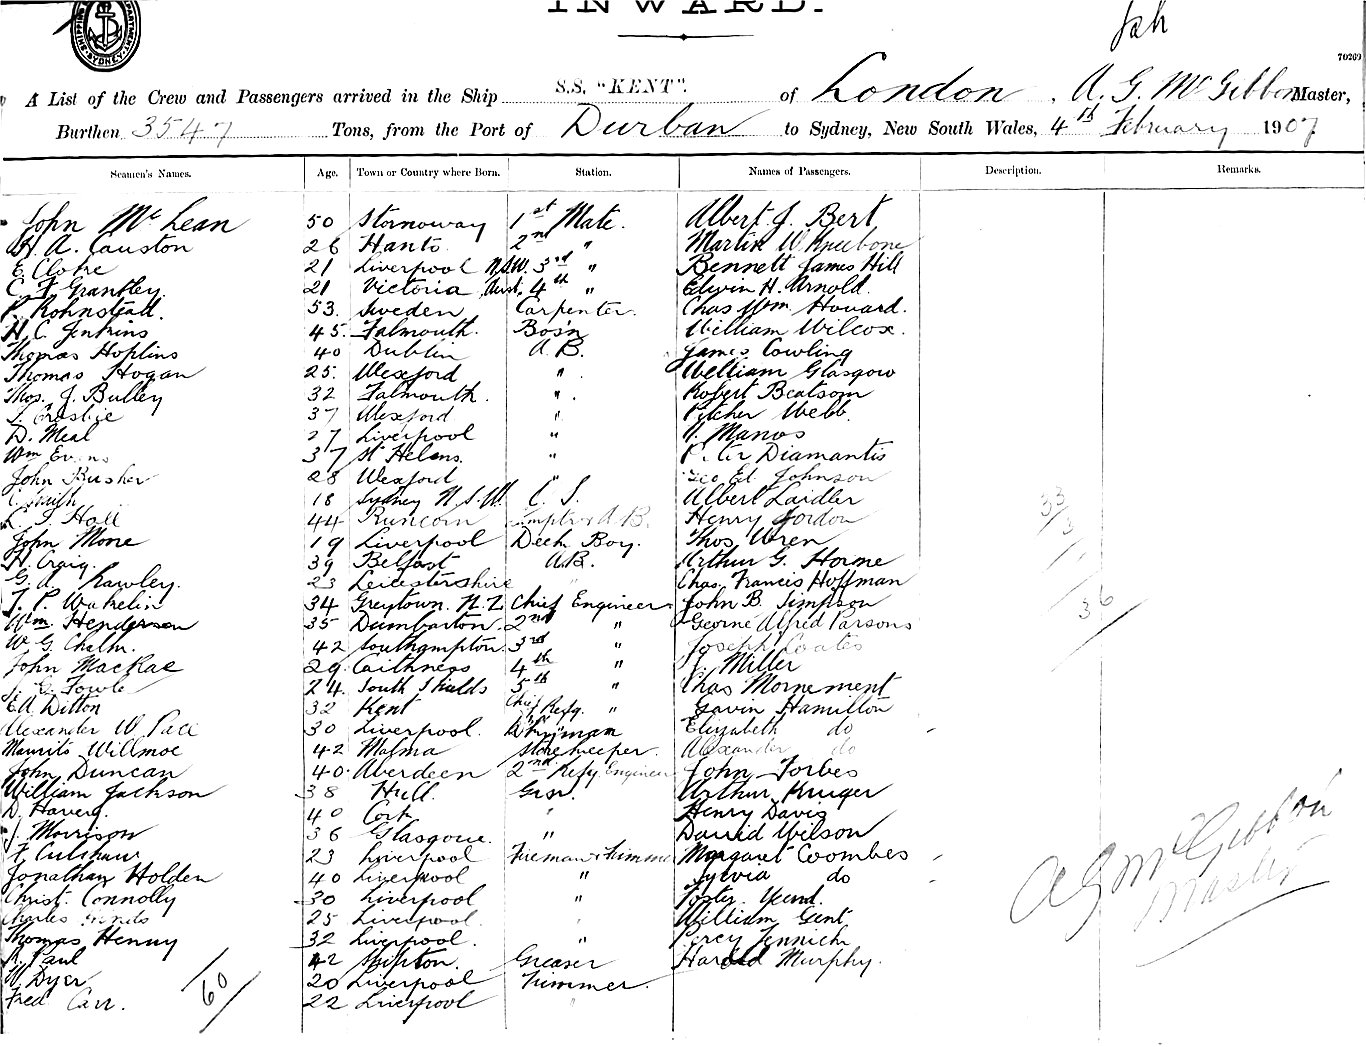 INWARD.
70269
A List of the Crew and Passengers arrived in the Ship S.S. "KENT". of London, A. G. McGibbon Master,
Burthen 3547 Tons, from the Port of Durban to Sydney, New South Wales, 4th February 1907.
Seamen's Names. Age. Town or Country where Born. Station. Names of Passengers. Description. Remarks.
John McLean 50 Stornoway 1st Mate. Albert J. Bert
H. A. Causton 26 Hants. 2nd " Martin W Kneebone
E. 21 Liverpool N.S.W. 3rd " Bennett James Hill
C. F. Grantley 21 Victoria Aust. 4th " Edwin H. Arnold.
Rohnstadt. 53. Sweden Carpenter. Chas Wm Howard.
H. C. Jenkins 45. Falmouth. Bosn William Wilcox.
Thomas Hopkins 40 Dublin A.B. James Cowling
Thomas Hogan 25. Wexford " William Glasgow
Thos. J. Bulley 32 Falmouth. " Robert Beatson
Crosbie 37 Wexford " Pitcher Webb
D. Meal 27 Liverpool " Manos
Wm Evans 37 St Helens. " Peter Diamantis
John Busher 28 Wexford " Geo Ed. Johnson
18 Sydney N.S.W. O. S. Albert Laidler
Hall 44 Runcorn A.B. Henry Gordon
John Mone 19 Liverpool Deck Boy. Thos. Wren
H. Craig 39 Belfast A.B. Arthur G. Horne
G. A. Rawley. 23 Leicestershire " Chas. Francis Hoffman
J. P. Wakelin 34 Greytown. N.Z. Chief Engineer John B. Simpson
Wm. Henderson 35 Dumbarton. 2nd " George Alfred Parsons
W. G. Chalm. 42 Southampton. 3rd " Joseph Coates
John MacRae 29. Caithness 4th " J. Miller
Fowle 24. South Shields 5th " Chas Mornement
E A Ditton 32 Kent Chief Refg. " Gavin Hamilton
Alexander W Pace 30 Liverpool. Elizabeth do
Maurits Willmoe 42 Malma Storekeeper. Alexander do
John Duncan 40. Aberdeen 2nd Refg. Engineer John Forbes
William Jackson 38 Hull. Gsr. Arthur Kruger
D. Haverg. 40 Cork " Henry Davis
J. Morrison 36 Glasgow. " David Wilson
F. Culshaw 23 Liverpool Fireman & Trimmer Margaret Coombes
Jonathan Holden 40 Liverpool " Sylvia do
Christ. Connolly 30 Liverpool " Foster
Charles 25 Liverpool William Gent
Thomas Henny 32 Liverpool. " Percy Fennich
Paul 42 Greaser Harold Murphy.
W Dyer 20 Liverpool Trimmer.
Fred Carr. 22 Liverpool "
60
33
3
36
A G McGibbon
Master